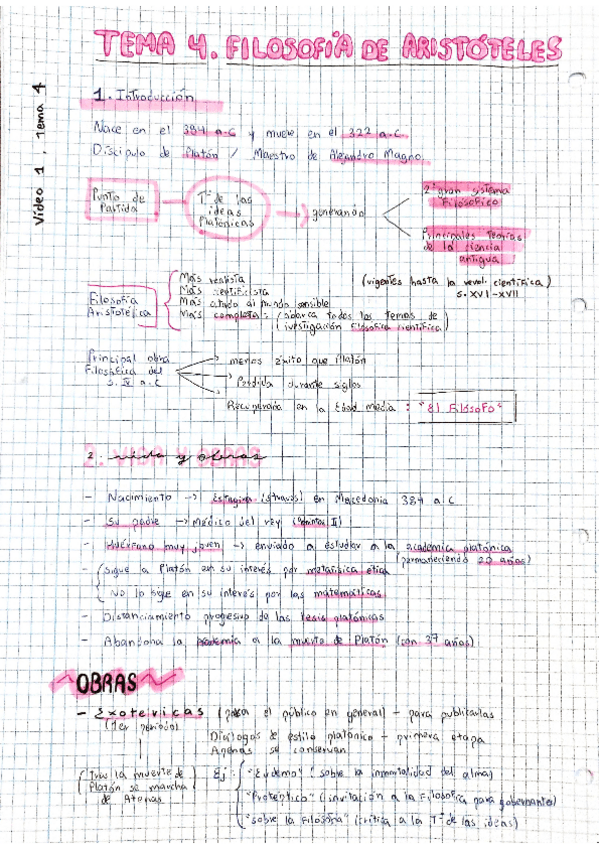 TEMA 4. FILOSOFÍA DE ARISTÓTELES
Vídeo 1. Tema 4
1. Introducción
Nace en el 384 a.C y muere en el 322 a.C.
Discípulo de Platón / Maestro de Alejandro Magno.
Punto de Partida
Tª de las ideas Platónicas
generando
2º gran sistema Filosófico
Principales teorías de la ciencia antigua
Filosofía Aristotélica
Más realista
Más científicista
Más atado al mundo sensible
Más completa: (abarca todos los temas de investigación filosófica científica)
(vigentes hasta la revol. científica)
s. XVI-XVII
Principal obra Filosófica del s. IV a.C
menos éxito que Platón
Perdida durante siglos
Recuperaría en la Edad media: "El Filósofo"
2. vida y obras
- Nacimiento -> Estagira (Stravos) en Macedonia 384 a.C
- Su padre -> Médico del rey (Amintas II)
- Huérfano muy joven -> enviado a estudiar a la académica platónica
(permaneciendo 20 años)
- Sigue a Platón en su interés por metafísica ética
No lo sigue en su interés por las matemáticas
Distanciamiento progesivo de las tesis platónicas
- Abandona la academia a la muerte de Platón (con 37 años)
OBRAS
- Exotéricas (para el público en general) - para publicarlas
(1er período)
Diálogos de estilo platónico - primera etapa
Apenas se conservan
(Tras la muerte de Platón se marcha de Atenas
Ej:
"Eudemo" (sobre la inmortalidad del alma)
"Protéptico" (invitación a la Filosofía para gobernante)
"sobre la Filosofía" (crítica a la Tª de las ideas)